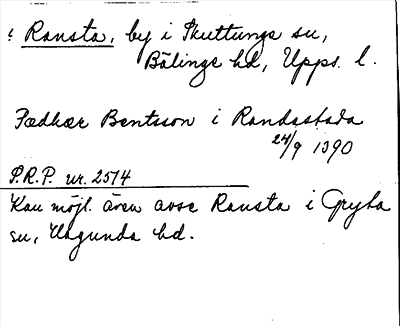 ? Ransta, by i Skuttunge su,
Bälinge hd, Upps. l.
Pædhær Bentsson i Randastada
24/9 1390
P.R.P. nr. 2514
Kan möjl. även avse Ransta i Gryta
su, Hagunda hd.